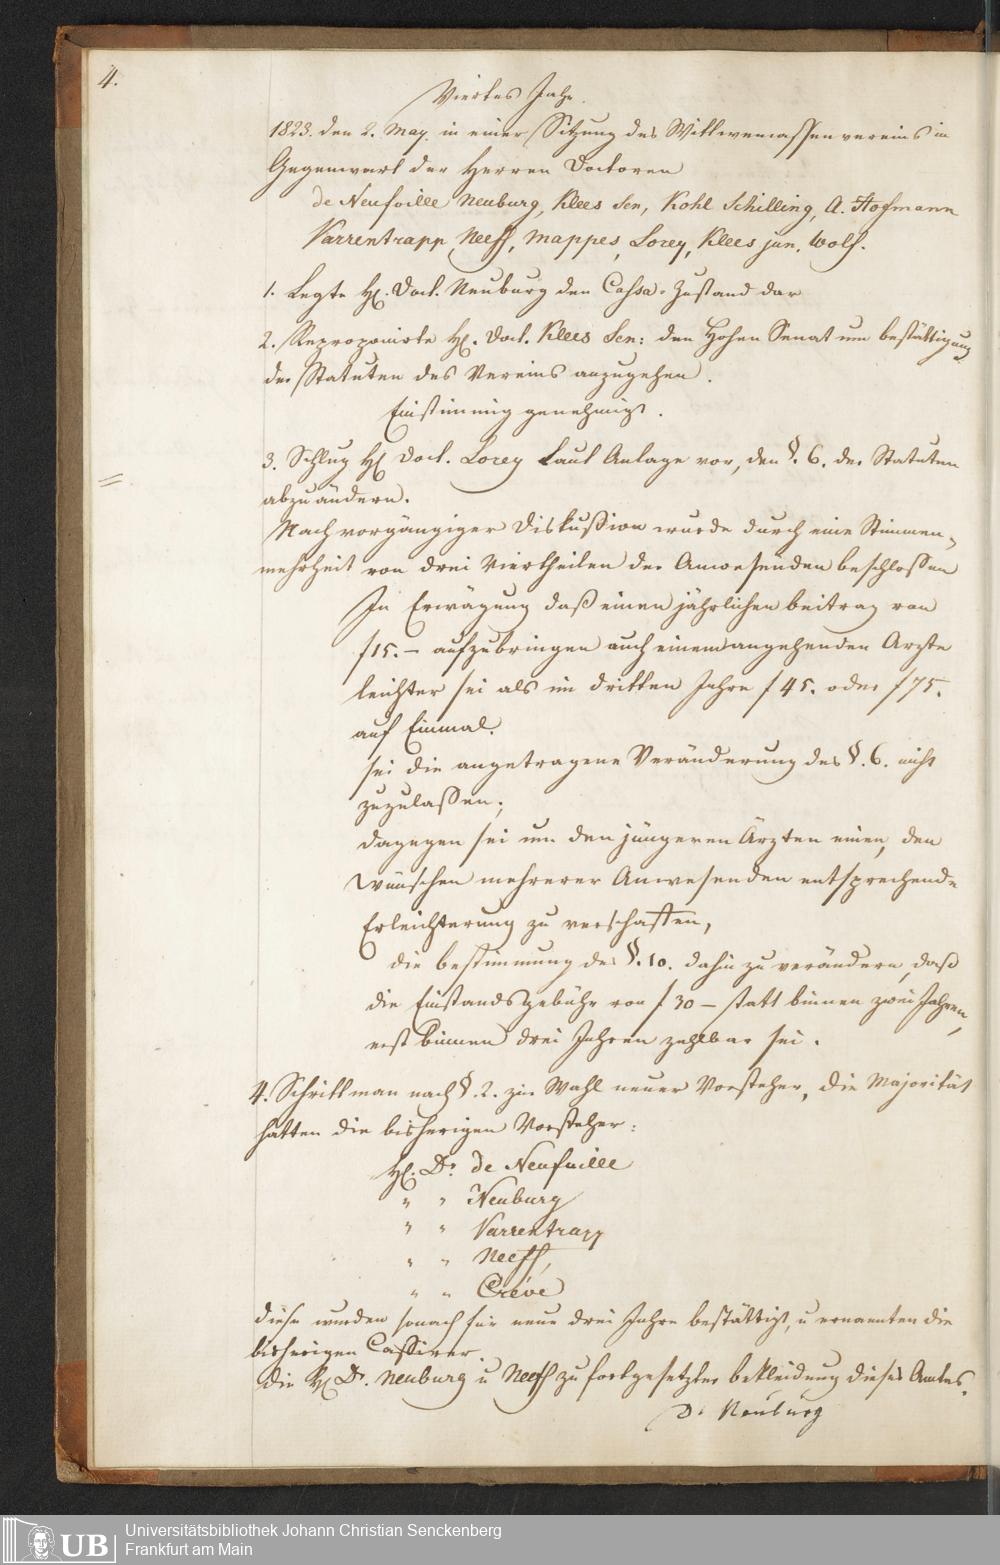 4.
Viertes Jahr.
1823. den 2. May. in einer Sitzung des Wittwencassenvereins in
Gegenwart der Herren Doctoren
de Neufville Neuburg, Klees Sen, Kohl Schilling, A. Hofmann
Varrentrapp, Neeff, Mappes, Lorey, Klees jun. Wolf.
1. Legte H. Doct. Neuburg den Cassa-Zustand dar
2. H. Doct. Klees Sen: den Hohen Senat um bestättigung
der Statuten des Vereins anzugehen.
Einstimmig genehmigt.
3. Schlug H. Doct. Lorey Laut Anlage vor, den §. 6. der Statuten
abzuändern.
Nach vorgängiger Diskußion wurde durch eine Stimmen-
mehrheit von drei Viertheilen der Anwesenden beschlossen
In Erwägung daß einen jährlichen beitrag von
f 15. – aufzubringen auch einem angehenden Arzte
leichter sei als im dritten Jahre f 45. oder f 75.
auf Einmal.
sei die angetragene Veränderung des §. 6. nicht
zuzulassen;
dagegen sei um den jüngeren Ärzten einen, den
Wünschen mehrerer Anwesenden entsprechende
Erleichterung zu verschaffen,
die bestimmung des §. 10. dahin zu verändern, daß
die Einstandsgebühr von f 30 – statt binnen zwei Jahren,
erst binnen drei Jahren zahlbar sei.
4. Schritt man nach §. 2. zur Wahl neuer Vorsteher, die Majorität
hatten die bisherigen Vorsteher:
H. Dr. de Neufville
" " Neuburg
" " Varrentrapp
" " Neeff,
" " Creve
diese wurden sonach für neue drei Jahre bestättigt, u ernannten die
bisherigen Cassirer
die H. Dr. Neuburg u Neeff zu fortgesetzter bekleidung dieses Amtes.
Dr Neuburg
UB
Universitätsbibliothek Johann Christian Senckenberg
Frankfurt am Main